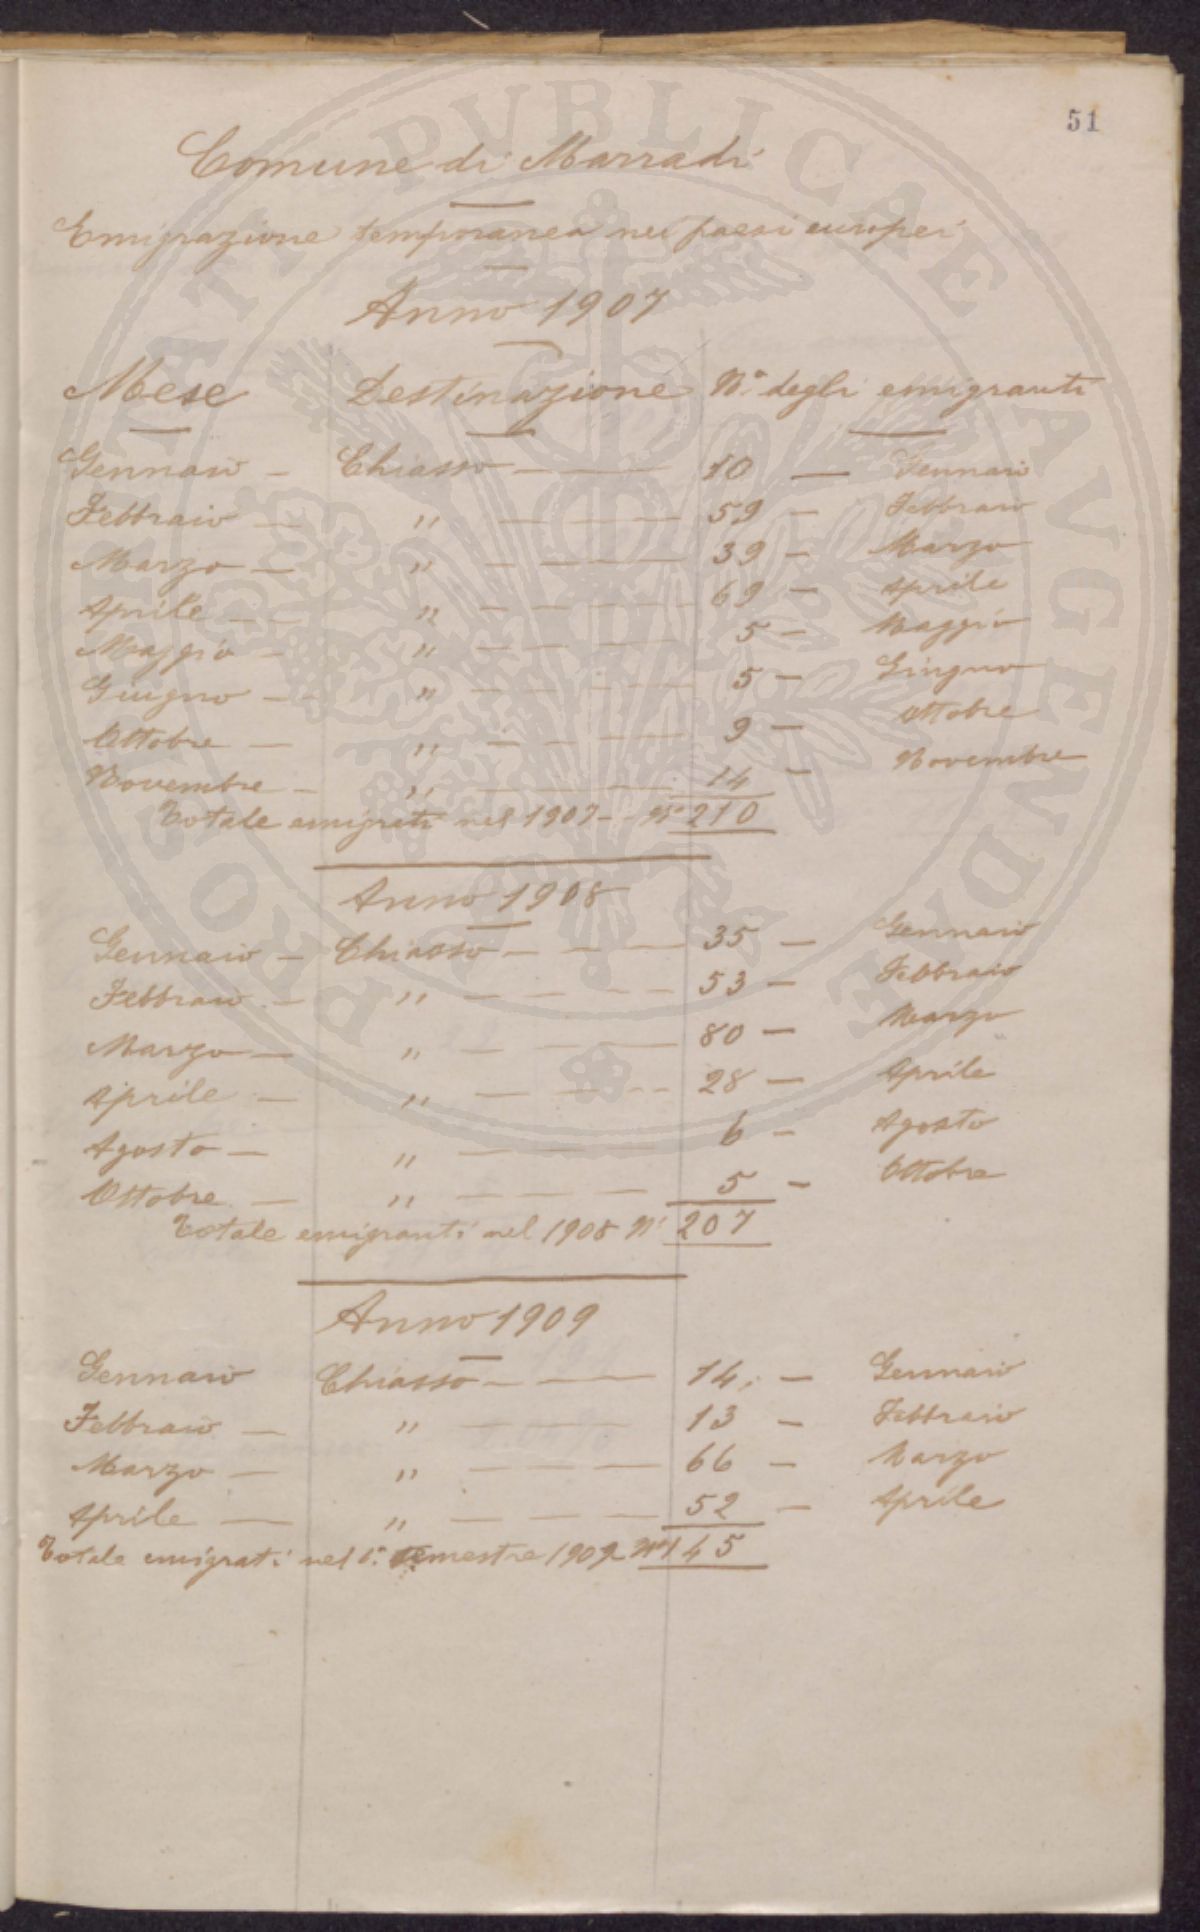 51
Comune di Marradi
Emigrazione temporanea nei paesi europei
Anno 1907
Mese Destinazione N.° degli emigranti
Gennaio — Chiasso — 10 — Gennaio
Febbraio — " — 59 — Febbraio
Marzo — " — 39 — Marzo
Aprile — " — 69 — Aprile
Maggio — " — 5 — Maggio
Giugno — " — 5 — Giugno
Ottobre — " — 9 — Ottobre
Novembre — " — 14 — Novembre
Totale emigrati nel 1907 — N° 210
Anno 1908
Gennaio — Chiasso — 35 — Gennaio
Febbraio — " — 53 — Febbraio
Marzo — " — 80 — Marzo
Aprile — " — 28 — Aprile
Agosto — " — 6 — Agosto
Ottobre — " — 5 — Ottobre
Totale emigranti nel 1908 N° 207
Anno 1909
Gennaio Chiasso — 14. — Gennaio
Febbraio — " — 13 — Febbraio
Marzo — " — 66 — Marzo
Aprile — " — 52 — Aprile
Totale emigrati nel 1° semestre 1909 N° 145
PROSPERITATI PVBLICAE AVGENDAE